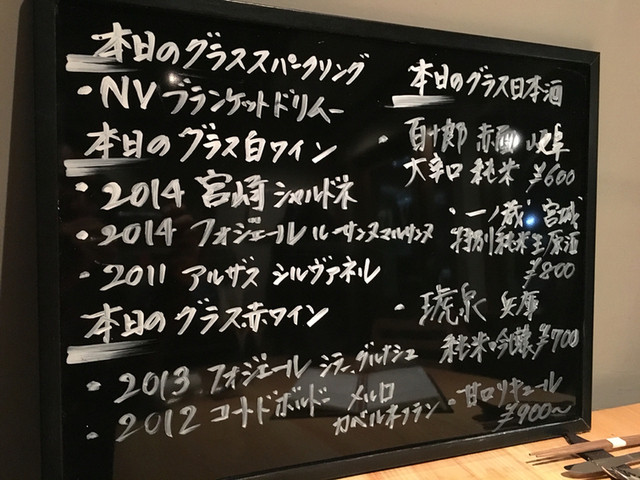 本日のグラススパークリング
・NV ブランケットドリムー
本日のグラス白ワイン
・2014 宮崎 シャルドネ
・2014 フォジェール ルーサンヌマルサンヌ
・2011 アルザス シルヴァネル
本日のグラス赤ワイン
・2013 フォジェール シラー、グルナシュ
・2012 コートドボルドー メルロ
カベルネフラン
本日のグラス日本酒
・百十郎 赤面 岐阜
大辛口 純米 ¥600
・一ノ蔵 宮城
特別純米生原酒
¥800
・琥泉 兵庫
純米吟醸 ¥700
・甘口リキュール
¥900〜